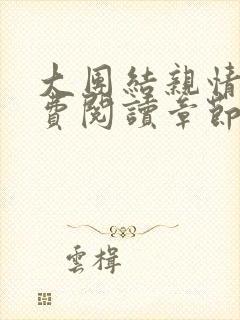 大團結親情
費閱讀章節
雲楫